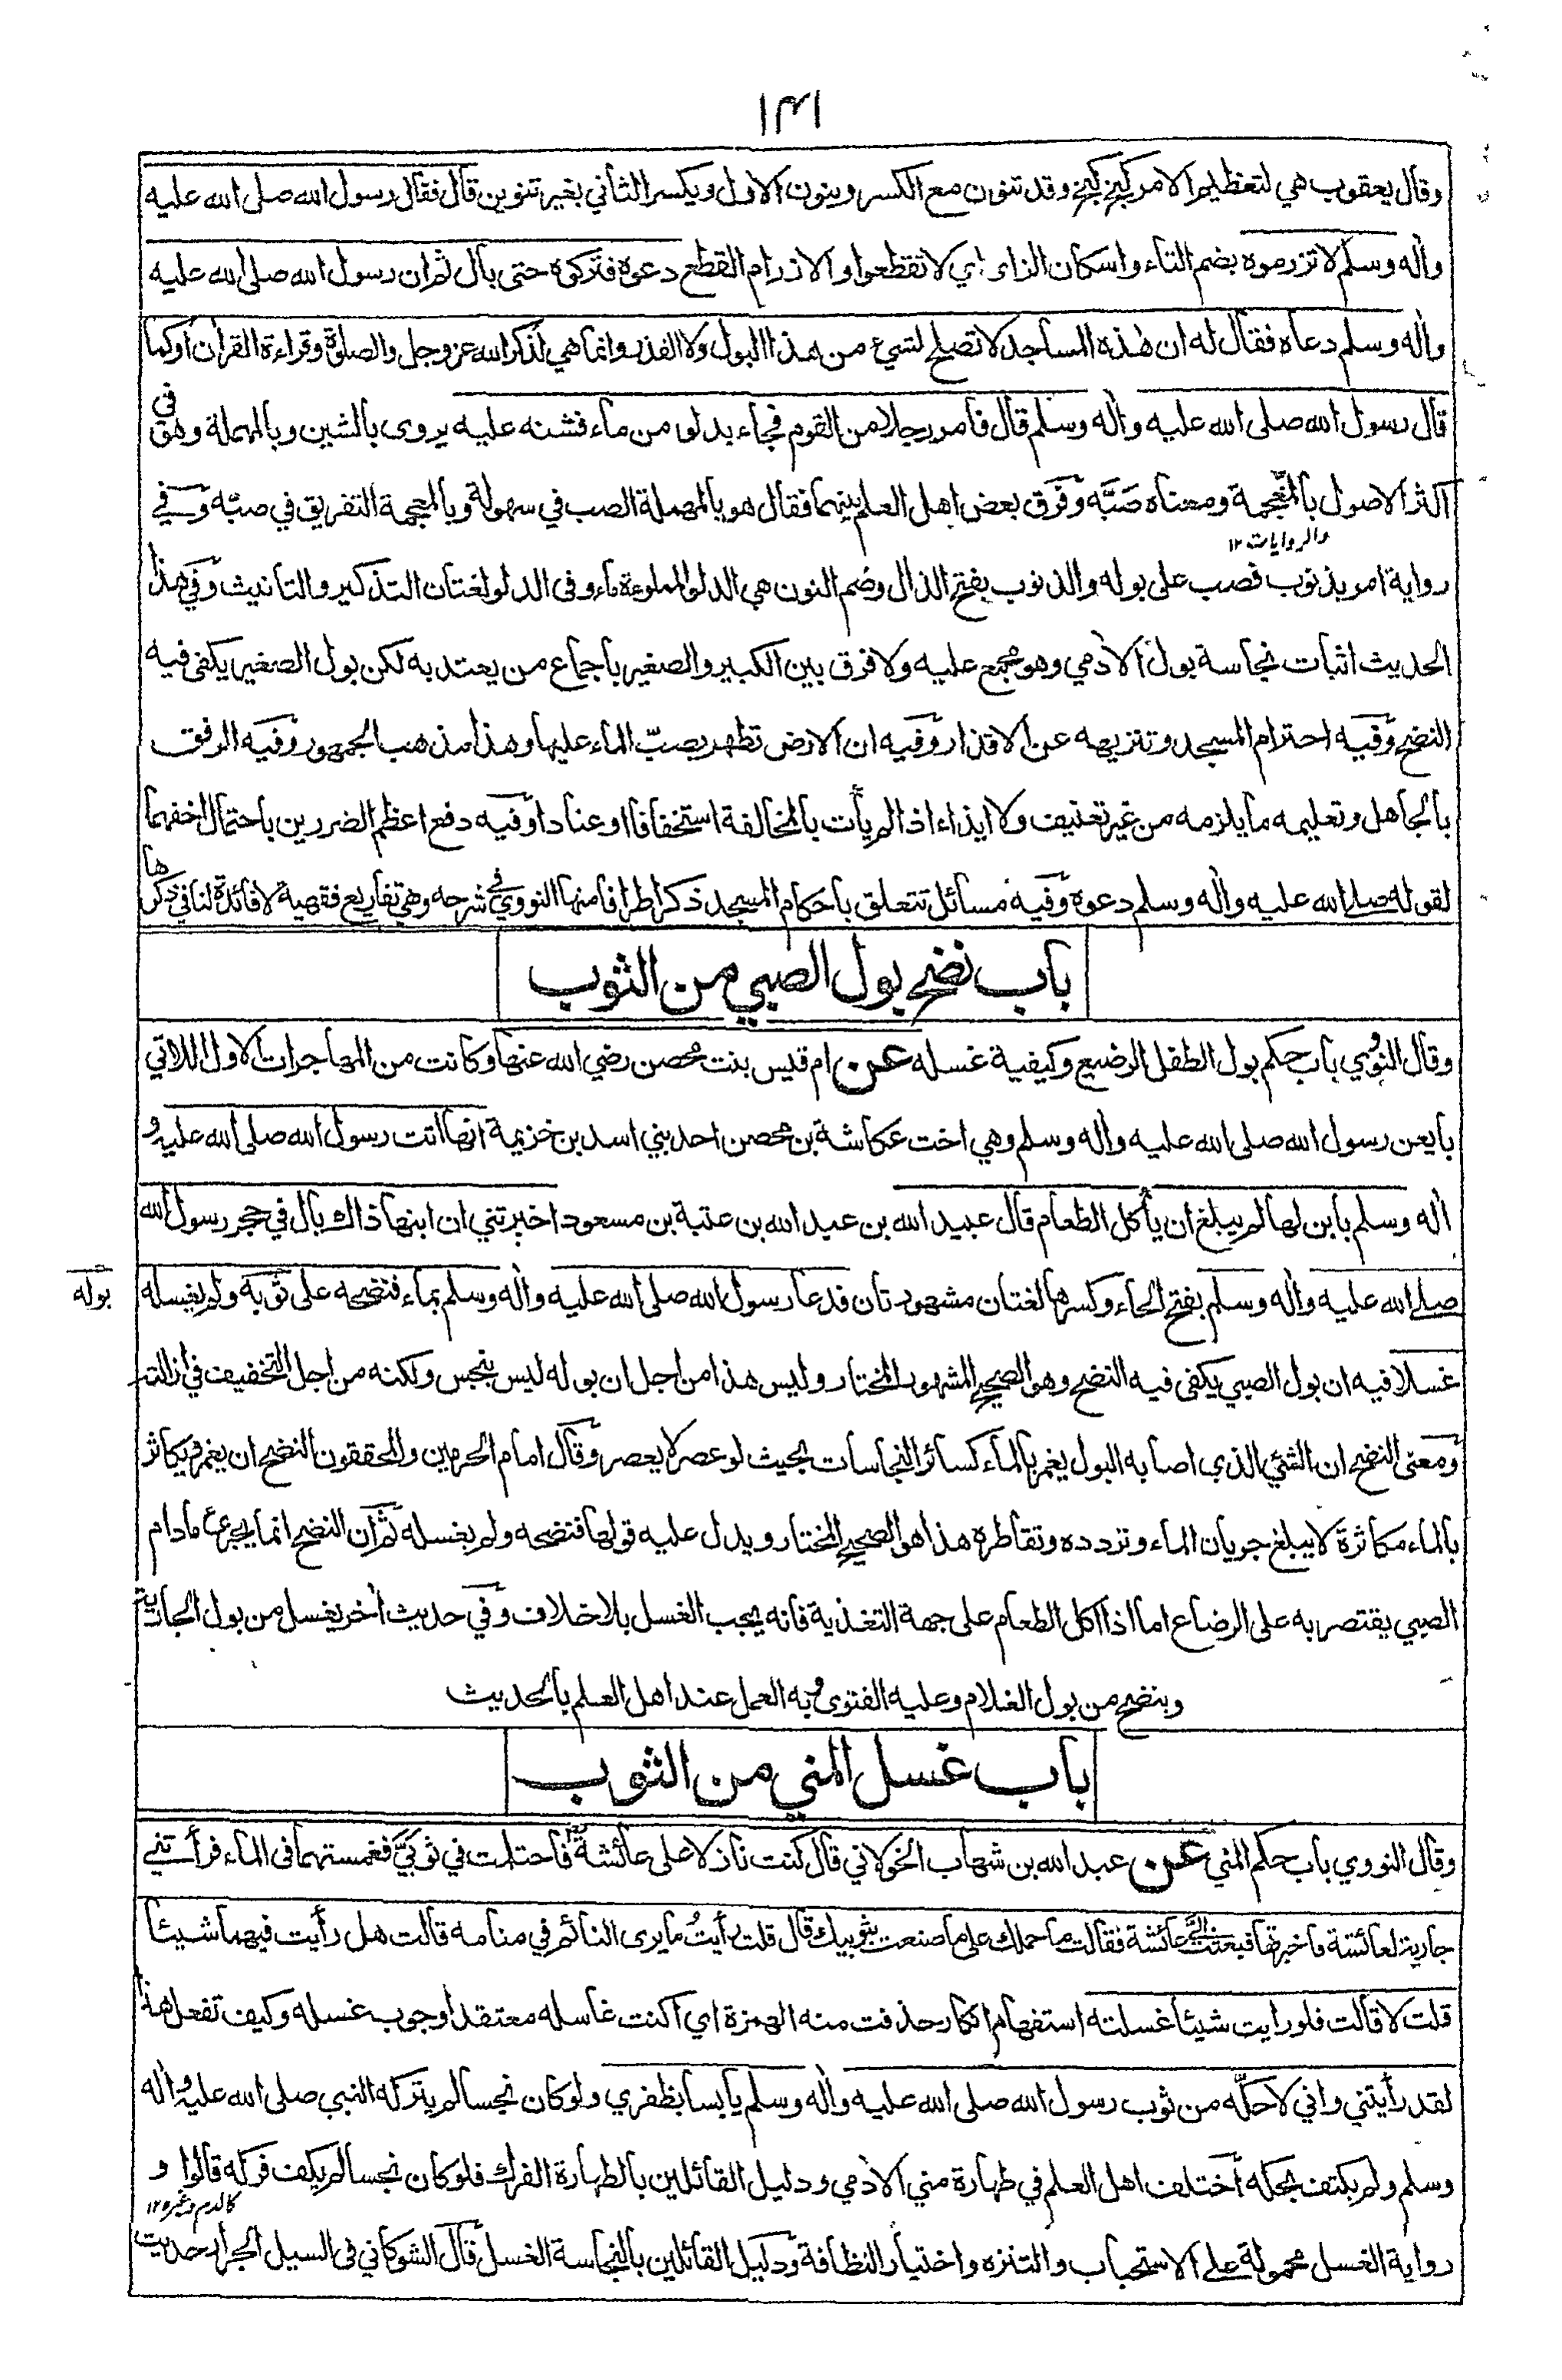 ١٣١
وقال يعقوب هي لتعظيم الامر كبخ بخ وقد تنون مع الكسر وينون الاول ويكسر الثاني بغير تنوين قال فقال رسول الله صلى الله عليه
واٰله وسلم لا تزرموه بضم التاء واسكان الزاء اي لا تقطعوا والازرام القطع دعوه فتركوه حتى بال ثم ان رسول الله صلى الله عليه
واٰله وسلم دعاه فقال له ان هذه المساجد لا تصلح لشيء من هذا البول ولا القذر وانما هي لذكر الله عز وجل والصلوة وقراءة القراٰن اوكما
قال رسول الله صلى الله عليه واٰله وسلم قال فأمر رجلا من القوم فجاء بدلو من ماء فشنه عليه يروى بالشين وبالمهملة وهو في
اكثر الاصول بالمعجمة ومعناه صَبَّه وفرق بعض اهل العلم بينهما فقال هو بالمهملة الصب في سهولة وبالمعجمة التفريق في صبّه وفي
والروايات ١٢
رواية امر بذنوب فصب على بوله والذنوب بفتح الذال وضم النون هي الدلو المملوءة ماء وفى الدلو لغتان التذكير والتانيث وفي هذا
الحديث اثبات نجاسة بول الاٰدمي وهو مجمع عليه ولا فرق بين الكبير والصغير باجماع من يعتد به لكن بول الصغير يكفى فيه
النضح وفيه احترام المسجد وتنزيهه عن الاقذار وفيه ان الارض تطهر بصبّ الماء عليها وهذا مذهب الجمهور وفيه الرفق
بالجاهل وتعليمه ما يلزمه من غير تعنيف ولا ايذاء اذا لم يأت بالمخالفة استخفافا او عنادا وفيه دفع اعظم الضررين باحتمال اخفهما
لقوله صلى الله عليه واٰله وسلم دعوه وفيه مسائل تتعلق باحكام المسجد ذكر اطرافا منها النووي في شرحه وهي تفاريع فقهية لا فائدة لنا في ذكرها
باب نضح بول الصبي من الثوب
وقال النووي باب حكم بول الطفل الرضيع وكيفية غسله عن ام قيس بنت محصن رضي الله عنها وكانت من المهاجرات الاول اللاتي
بايعن رسول الله صلى الله عليه واٰله وسلم وهي اخت عكاشة بن محصن احد بني اسد بن خزيمة انها اتت رسول الله صلى الله عليه و
اٰله وسلم بابن لها لم يبلغ ان يأكل الطعام قال عبيد الله بن عبد الله بن عتبة بن مسعود اخبرتني ان ابنها ذاك بال في حجر رسول الله
صلى الله عليه واٰله وسلم بفتح الحاء وكسرها لغتان مشهورتان فدعا رسول الله صلى الله عليه واٰله وسلم بماء فنضحه على ثوبه ولم يغسله
بوله
غسلا فيه ان بول الصبي يكفى فيه النضح وهو الصحيح المشهور المختار وليس هذا من اجل ان بوله ليس بنجس ولكنه من اجل التخفيف في ازالته
ومعنى النضح ان الشئ الذي اصابه البول يغمر بالماء كسائر النجاسات بحيث لو عصر لا يعصر وقال امام الحرمين والمحققون النضح ان يغمر ويكاثر
بالماء مكاثرة لا يبلغ جريان الماء وتردده وتقاطره هذا هو الصحيح المختار ويدل عليه قولها فنضحه ولم يغسله ثم ان النضح انما يجزئ ما دام
الصبي يقتصر به على الرضاع اما اذا اكل الطعام على جهة التغذية فانه يجب الغسل بلا خلاف وفي حديث اٰخر يغسل من بول الجارية
وينضح من بول الغلام وعليه الفتوى وبه العمل عند اهل العلم بالحديث
باب غسل المني من الثوب
وقال النووي باب حكم المني عن عبد الله بن شهاب الخولاني قال كنت نازلا على عائشة فاحتلمت في ثوبيّ فغمستهما فى الماء فرأتني
جارية لعائشة فاخبرتها فبعثت اليَّ عائشة فقالت ما حملك على ما صنعت بثوبيك قال قلت رأيتُ ما يرى النائم في منامه قالت هل رأيت فيهما شيئا
قلت لا قالت فلو رايت شيئا غسلته استفهام انكار حذفت منه الهمزة اي اكنت غاسله معتقدا وجوب غسله وكيف تفعل هذا
لقد رأيتني واني لاحكّه من ثوب رسول الله صلى الله عليه واٰله وسلم يابسا بظفري ولو كان نجسا لم يتركه النبي صلى الله عليه واٰله
وسلم ولم يكتف بحكه اختلف اهل العلم في طهارة مني الاٰدمي ودليل القائلين بالطهارة الفرك فلو كان نجسا لم يكف فركه قالوا و
كالدم وغيره ١٢
رواية الغسل محمولة على الاستحباب والتنزه واختيار النظافة ودليل القائلين بالنجاسة الغسل قال الشوكاني فى السيل الجرار حديث